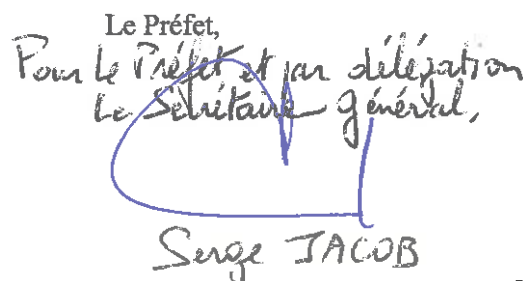 Le Préfet,
Pour le Préfet et par délégation
Le Secrétaire Général,
Serge JACOB